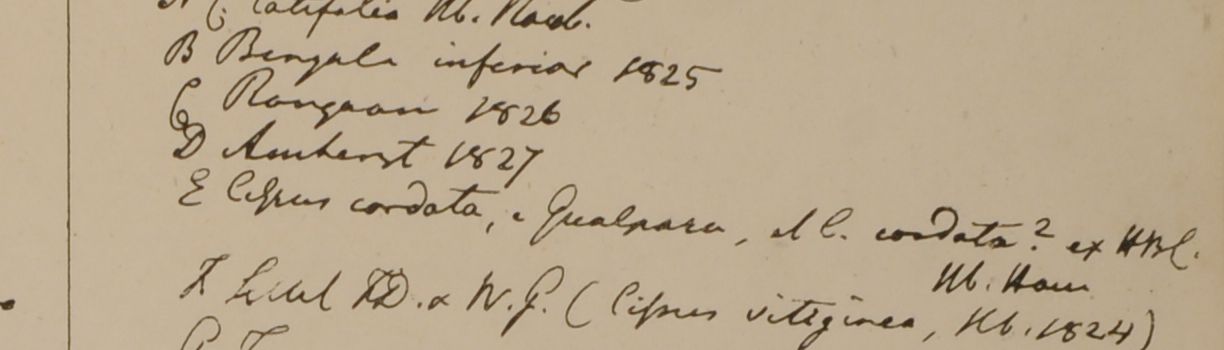 C. latifolia Hb. Roxb.
B Bengala inferior 1825
C Rangoon 1826
D Amherst 1827
E Cissus cordata, e Gualpara, et C. cordata? ex HBC.
Hb. Ham
F D. & W.G. (Cissus vitiginea, Hb. 1824)